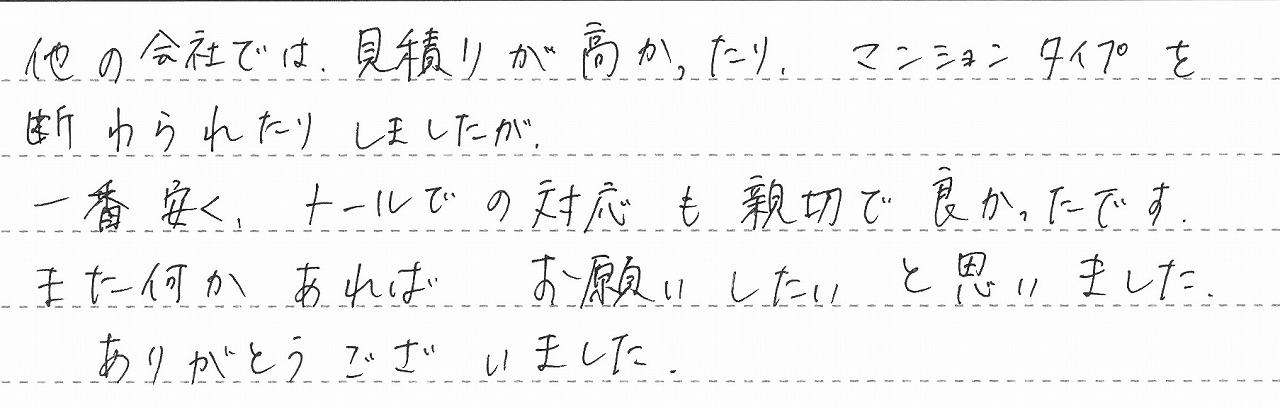 他の会社では、見積りが高かったり、マンションタイプを
断わられたりしましたが、
一番安く、トールでの対応も親切で良かったです。
また何かあれば お願いしたいと思いました。
ありがとうございました。